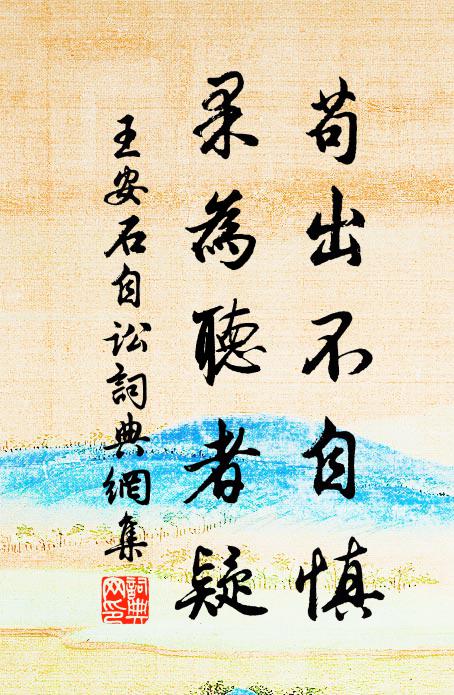 苟出不自慎
果為聽者疑
王安石自訟詞典網集
詞典網印